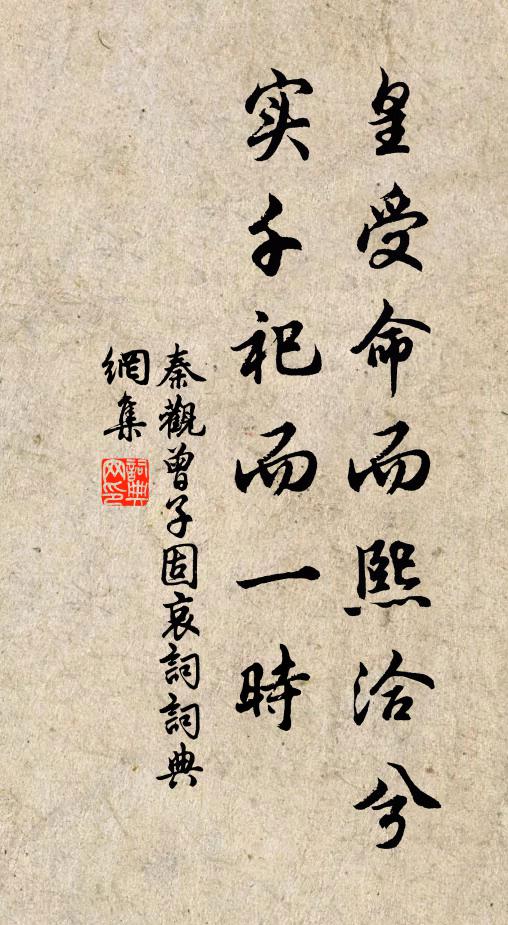 皇受命而熙洽兮
实千祀而一時
秦觀曾子固哀詞詞典
網集
詞典网印